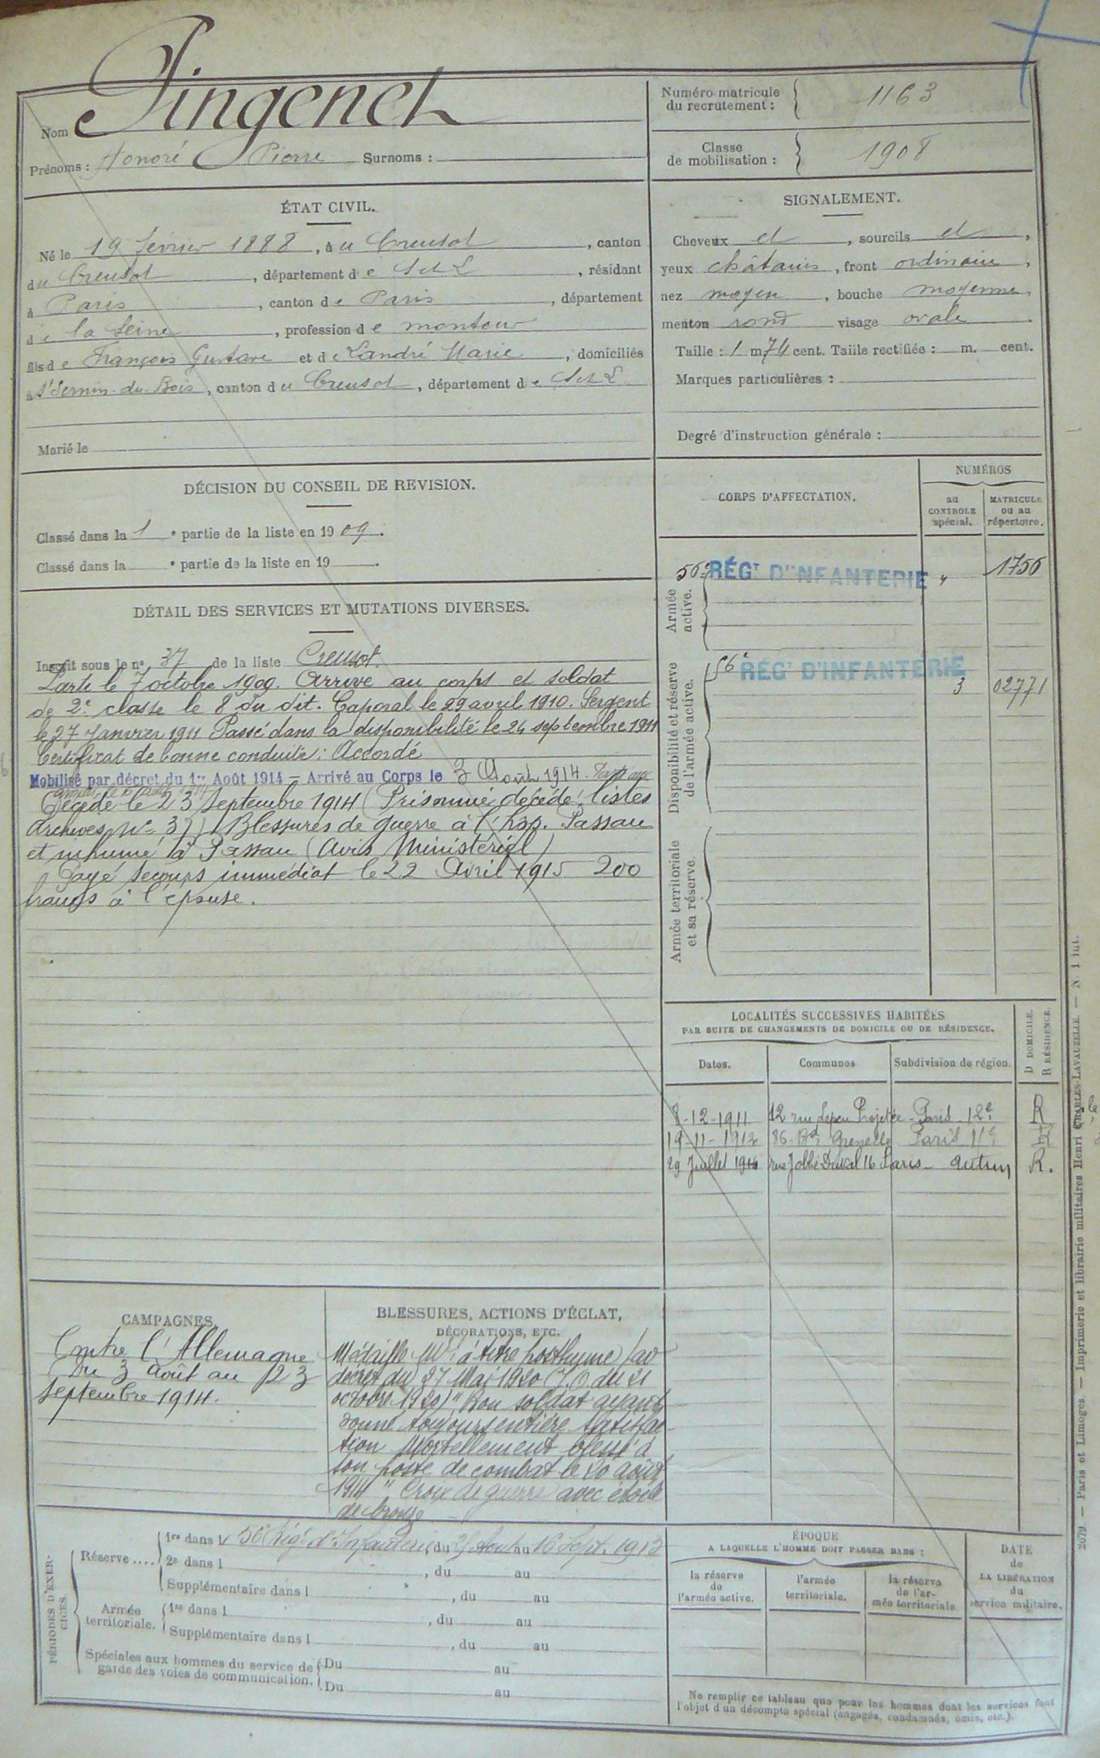 Nom Pingenet
Prénoms : Honoré Pierre Surnoms :
Numéro matricule du recrutement : 1163
Classe de mobilisation : 1908
ÉTAT CIVIL.
Né le 19 février 1888, à u Creusot, canton
du Creusot, département de S et L, résidant
à Paris, canton de Paris, département
de la Seine, profession de monteur
fils de François Gustave et de Landré Marie, domiciliés
à St Sernin-du-Bois, canton du Creusot, département de S et L
Marié le
SIGNALEMENT.
Cheveux et, sourcils et,
yeux châtains, front ordinaire,
nez moyen, bouche moyenne,
menton rond visage ovale
Taille : 1 m 74 cent. Taille rectifiée : m. cent.
Marques particulières :
Degré d'instruction générale :
DÉCISION DU CONSEIL DE REVISION.
Classé dans la 1 e partie de la liste en 1909.
Classé dans la e partie de la liste en 19 .
DÉTAIL DES SERVICES ET MUTATIONS DIVERSES.
Inscrit sous le no 37 de la liste Creusot.
Parti le 7 octobre 1909. Arrivé au corps et soldat
de 2e classe le 8 du dit. Caporal le 29 avril 1910. Sergent
le 27 Janvier 1911 Passé dans la disponibilité le 24 septembre 1911
Certificat de bonne conduite : Accordé
Mobilisé par décret du 1er Août 1914 – Arrivé au Corps le 3 Août 1914.
Décédé le 23 Septembre 1914 (Prisonnier décédé, listes
Archives No 37) Blessures de guerre à l'hôp. Passau
et inhumé à Passau (Avis Ministériel)
Payé secours immédiat le 22 Avril 1915 200
francs à l'épouse.
CORPS D'AFFECTATION.
NUMÉROS
au CONTROLE spécial.
MATRICULE ou au répertoire.
Armée active.
56e RÉGT D'INFANTERIE " 1756
Disponibilité et réserve de l'armée active.
56e RÉGT D'INFANTERIE 3 02771
Armée territoriale et sa réserve.
LOCALITÉS SUCCESSIVES HABITÉES
PAR SUITE DE CHANGEMENTS DE DOMICILE OU DE RÉSIDENCE.
D DOMICILE. R RÉSIDENCE.
Dates. Communes Subdivision de région.
8-12-1911 12 rue Projetée - Paris 12e R
19-11-1912 86 Bd Grenelle Paris R
29 Juillet 1914 rue Jobbé Duval 16 Paris - Autun R.
CAMPAGNES.
Contre l'Allemagne
Du 3 août au 23
septembre 1914.
BLESSURES, ACTIONS D'ÉCLAT,
DÉCORATIONS, ETC.
Médaille Mre à titre posthume par
décret du 27 Mai 1920 (J.O. du 21
octobre 1920) "Bon soldat ayant
donné toujours entière satisfac
tion Mortellement blessé à
son poste de combat le 20 août
1914" Croix de guerre avec étoile
de bronze
PÉRIODES D'EXERCICES.
Réserve .... 1re dans le 56e Rég. d'Infanterie du 25 Août au 16 Sept. 1913
2e dans l , du au
Supplémentaire dans l , du au
Armée territoriale. 1re dans l , du au
Supplémentaire dans l , du au
Spéciales aux hommes du service de garde des voies de communication. Du au
Du au
ÉPOQUE
A LAQUELLE L'HOMME DOIT PASSER DANS :
la réserve de l'armée active.
l'armée territoriale.
la réserve de l'armée territoriale.
DATE de LA LIBÉRATION du service militaire.
Ne remplir ce tableau que pour les hommes dont les services font
l'objet d'un décompte spécial (engagés, condamnés, omis, etc.).
2079. — Paris et Limoges. — Imprimerie et librairie militaires Henri CHARLES-LAVAUZELLE. — N 1 int.